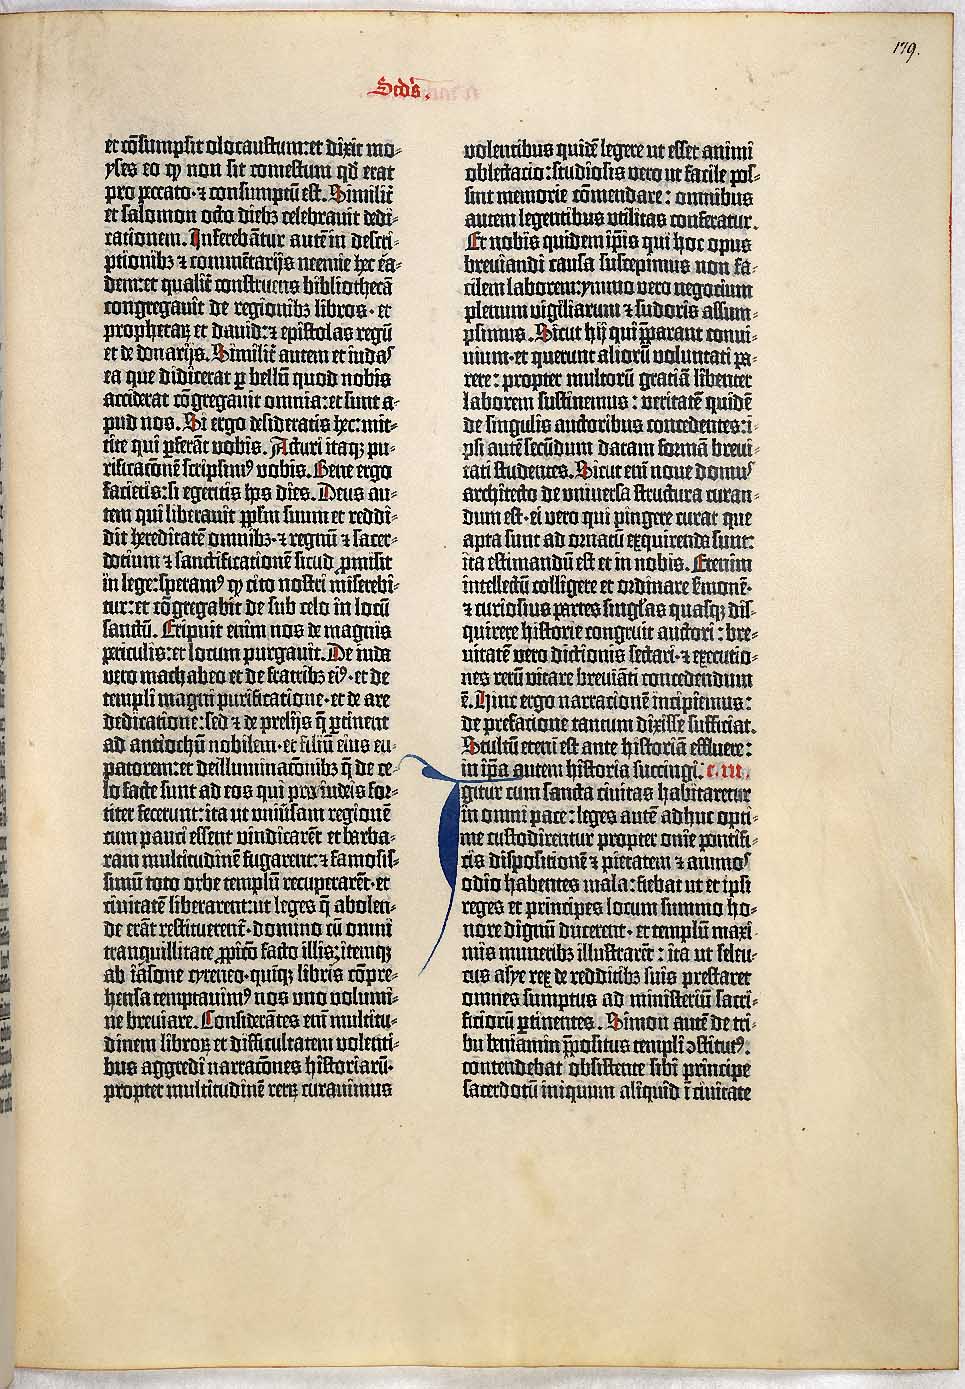 179.
Scds.
et cōsumpsit olocaustum: et dixit mo-
yses eo ꝙ non sit comestum qd̄ erat
pro peccato· ⁊ consumptū est. Similit̄
et salomon octo diebꝫ celebrauit dedi-
cationem. Inferebātur autē in descri-
ptionibꝫ ⁊ commētarijs neemie hec ea-
dem: et qualit̄ construens bibliothecā
congregauit de regionibꝫ libros· et
prophetaꝝ et dauid: ⁊ epistolas regū
et de donarijs. Similit̄ autem et iudas
ea que didicerat ꝑ bellū quod nobis
acciderat cōgregauit omnia: et sunt a-
pud nos. Si ergo desideratis hec: mit-
tite qui ꝑferāt vobis. Acturi itaqꝫ pu-
rificacōnē scripsimꝰ vobis. Bene ergo
facietis: si egeritis hos dies. Deus au-
tem qui liberauit pplm̄ suum et reddi-
dit hereditatē omnibꝫ· ⁊ regnū ⁊ sacer-
dotium ⁊ sanctificationē sicud ꝓmisit
in lege: speramꝰ ꝙ cito nostri miserebi-
tur: et cōgregabit de sub celo in locū
sanctū. Eripuit enim nos de magnis
periculis: et locum purgauit. De iuda
vero machabeo et de fratribꝫ eiꝰ· et de
templi magni purificatione· et de are
dedicatione: sed ⁊ de prelijs q̄ ꝑtinent
ad antiochū nobilem· et filiū eius eu-
patorem: et de illuminacōnibꝫ q̄ de ce-
lo facte sunt ad eos qui pro iudeis for-
titer fecerunt: ita ut vniūsam regionē
cum pauci essent vindicarēt et barba-
ram multitudinē fugarent: ⁊ famosis-
simū toto orbe templū recuperarēt· et
ciuitatē liberarent: ut leges q̄ abolen-
de erāt restituerent̄· domino cū omni
tranquillitate ꝓpicō facto illis: itemqꝫ
ab iasone cyreneo· quiqꝫ libris cōpre-
hensa temptauimꝰ nos vno volumi-
ne breuiare. Considerātes enī multitu-
dinem libroꝝ et difficultatem volenti-
bus aggredi narracōnes historiarū·
propter multitudinē rerū curauimus
volentibus quidē legere ut esset animi
oblectacio: studiosis vero ut facile pos-
sint memorie cōmendare: omnibus
autem legentibus utilitas conferatur.
Et nobis quidem ip̄is qui hoc opus
breuiandi causa suscepimus non fa-
cilem laborem: ymmo vero negocium
plenum vigiliarum ⁊ sudoris assum-
psimus. Sicut hij qui p̄parant conui-
uium· et querunt aliorū voluntati pa-
rere: propter multorū gratiā libenter
laborem sustinemus: veritatē quidē
de singulis auctoribus concedentes: i-
psi autē secūdum datam formā breui-
tati studentes. Sicut enī noue domus
architecto de vniuersa structura curan-
dum est· ei vero qui pingere curat que
apta sunt ad ornatū exquirenda sunt:
ita estimandū est et in nobis. Etenim
intellectū colligere et ordinare s̄monē·
⁊ curiosius partes singl̄as quasqꝫ dis-
quirere historie congruit auctori: bre-
uitatē vero dictionis sectari· ⁊ executio-
nes rerū vitare breuiāti concedendum
ē. Hinc ergo narracionē incipiemus:
de prefacione tantum dixisse sufficiat.
Stultū etenī est ante historiā effluere:
in ip̄a autem historia succingi. c. iii.
Igitur cum sancta ciuitas habitaretur
in omni pace: leges autē adhuc opti-
me custodirentur propter onie pontifi-
cis dispositionē ⁊ pietatem ⁊ animos
odio habentes mala: fiebat ut et ipsi
reges et principes locum summo ho-
nore dignū ducerent· et templū maxi-
mis muneribꝫ illustrarēt: ita ut seleu-
cus asye rex de redditibꝫ suis prestaret
omnes sumptus ad ministeriū sacri-
ficiorū ꝑtinentes. Simon autē de tri-
bu beniamin p̄positus templi ↄstitutꝰ.
contendebat obsistente sibi principe
sacerdotū iniquum aliquid ī ciuitate